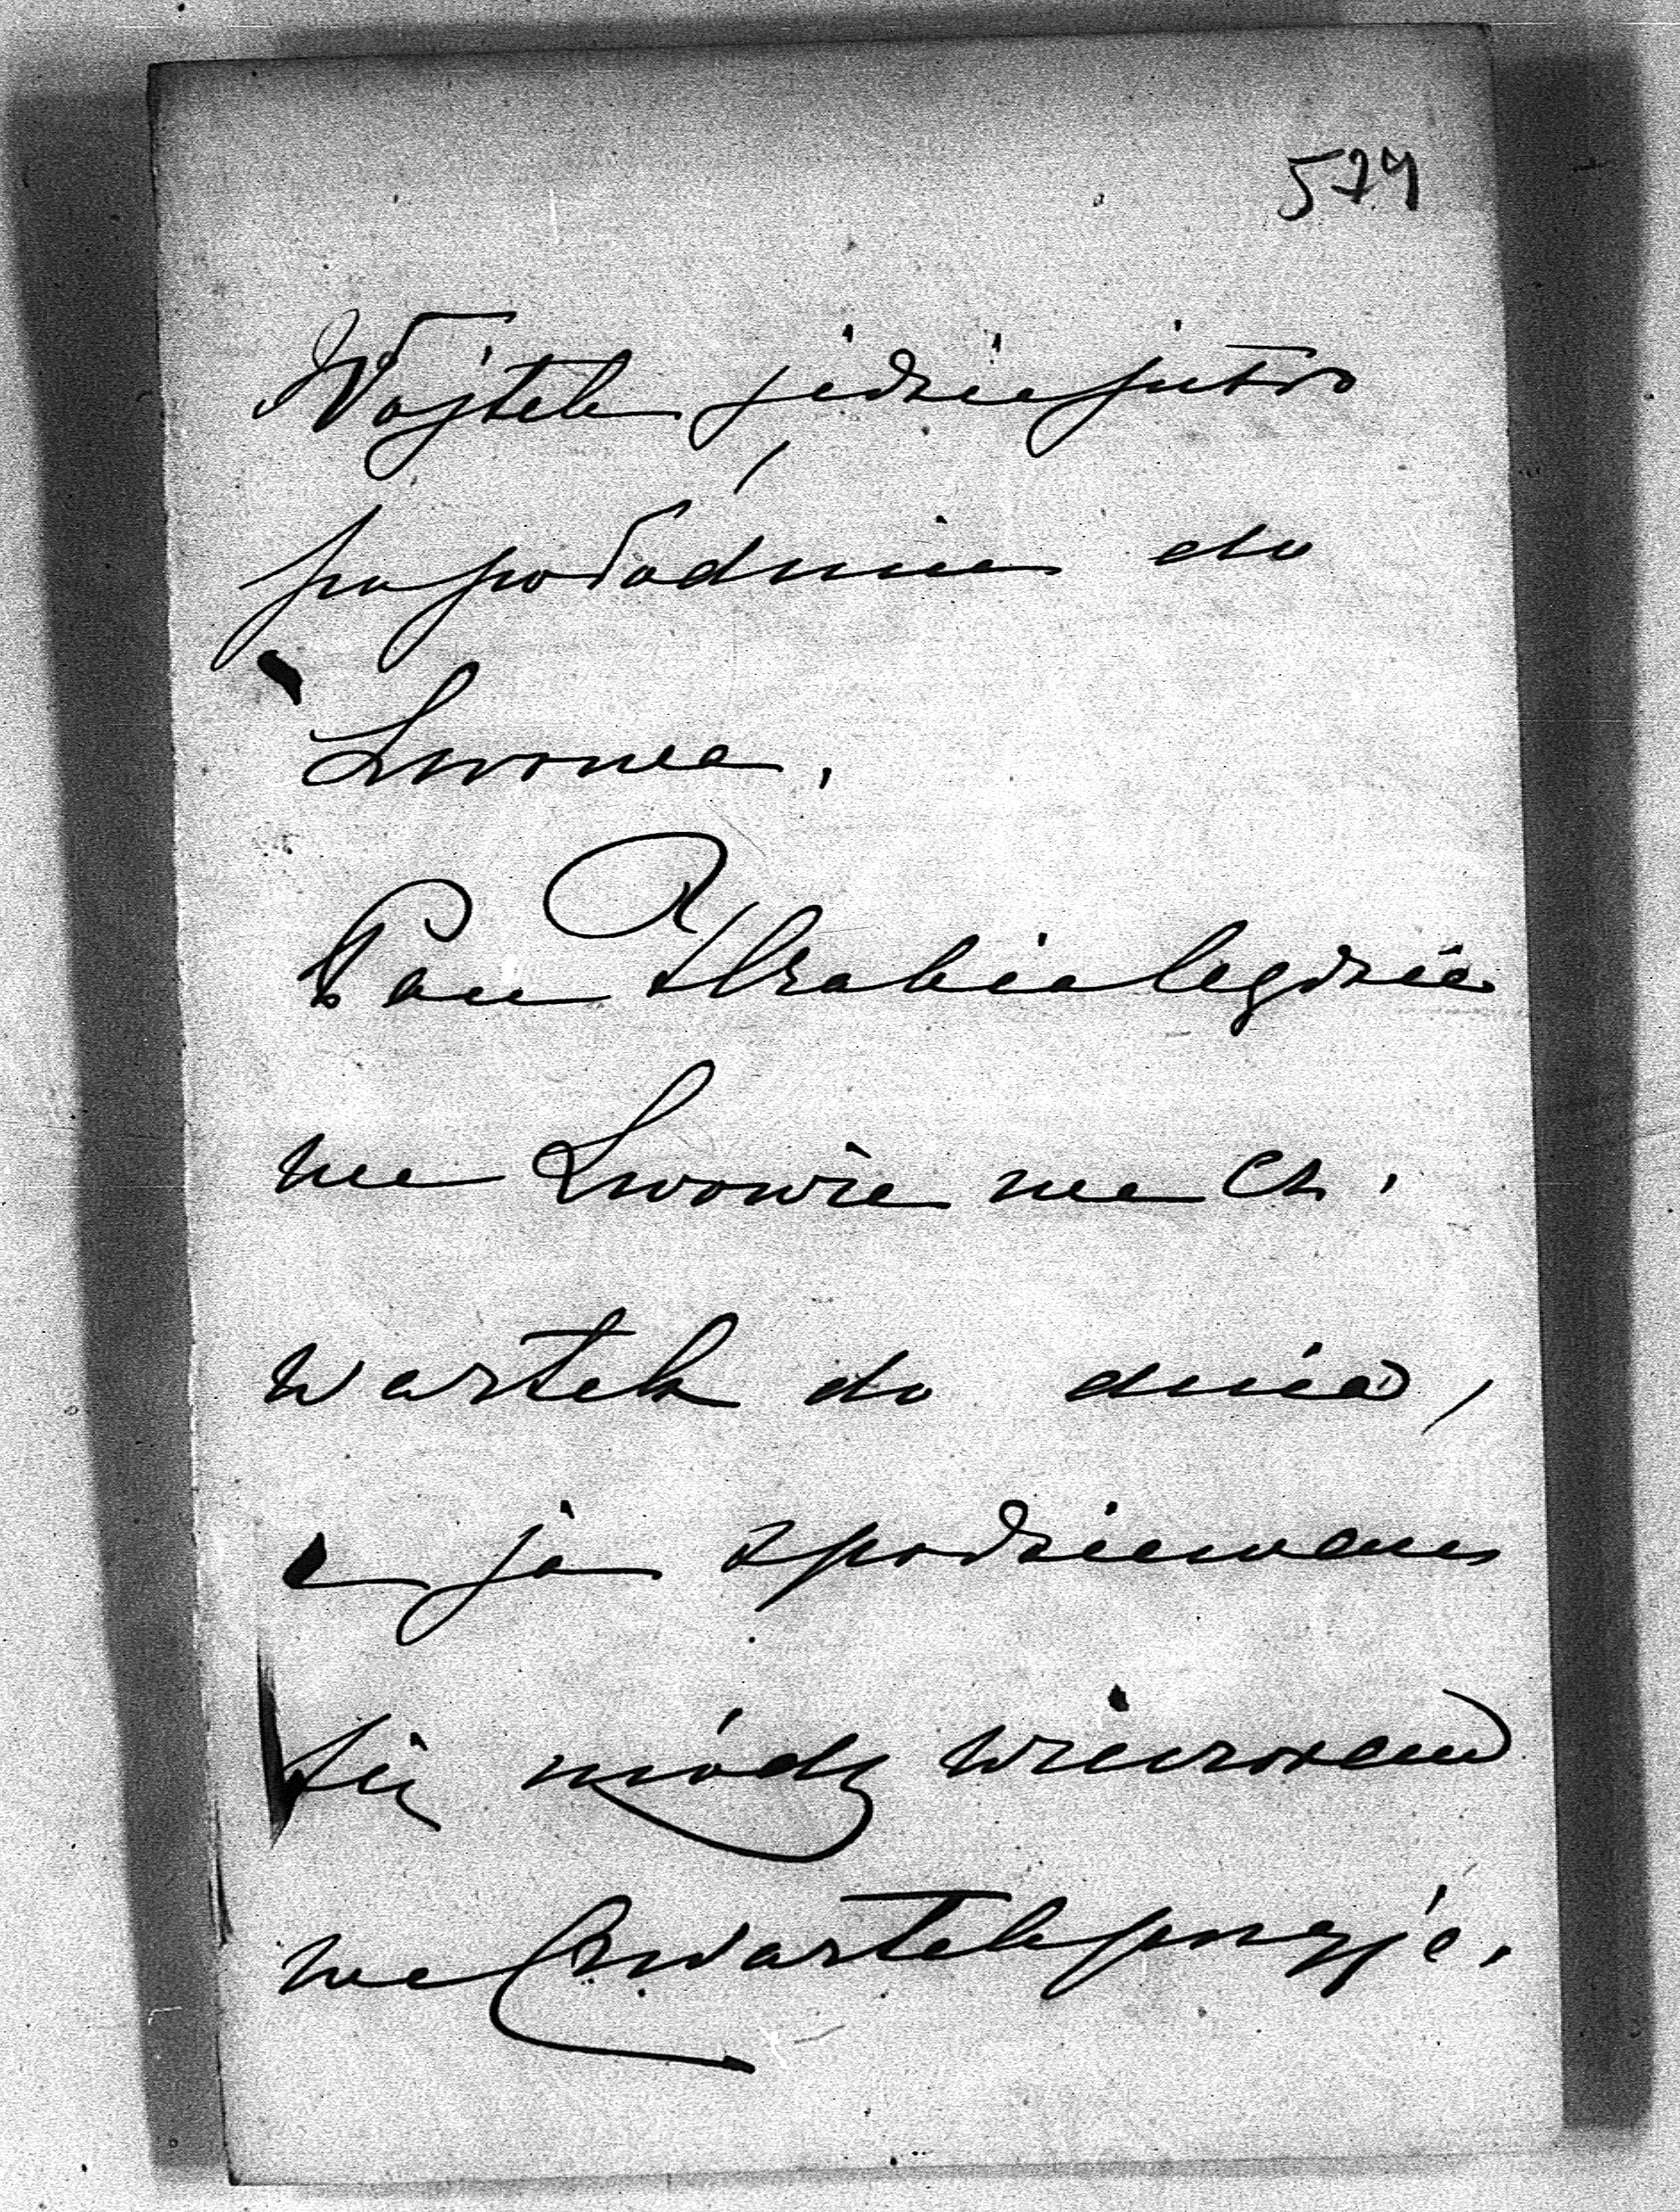 574
Wojtek jedzie jutro
po połódniu do
Lwowa.
Pan Hrabia będzie
we Lwowie we Cz.
wartek do dnia,
a ja spodziewam
się módz wieczorem
we Czwartek przyje.